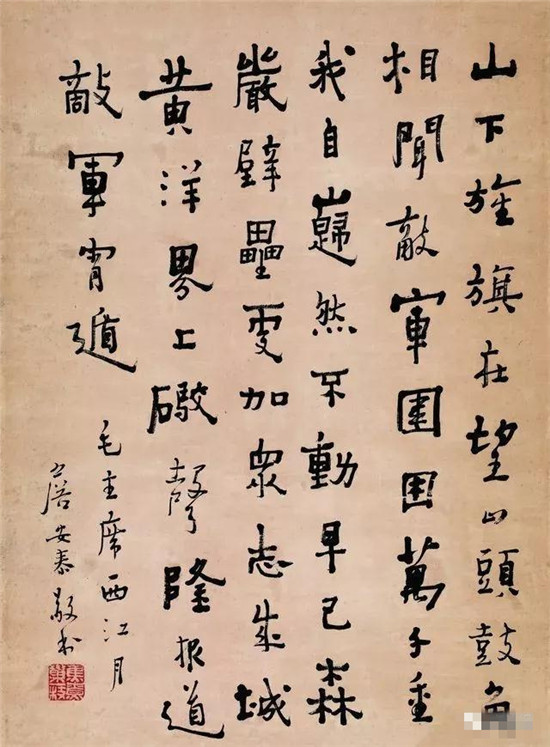 山下旌旗在望山頭鼓角
相聞敵軍圍困萬千重
我自巋然不動早已森
嚴壁壘更加眾志成城
黃洋界上礮聲隆報道
敵軍宵遁
毛主席西江月
詹安泰敬書